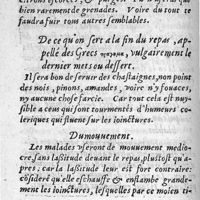 bien rarement de grenades. Voire du tout te
faudra fuir tous autres semblables.
De ce qu'on sert a la fin du repas, ap-
pellé des Grecs vulgairement le
dernier mets ou dessert.
Il sera bon de seruir des chastaignes, non point
des noix, pinons, amandes, voire n'y fouaces,
ny aucune chose farcie. Car tout cela est nuysi
a ceux qui sont tormentés d'humeurs co-
leriques qui fluent sur les ioinctures.
Du mouuement.
Les malades vseront de mouuement medio-
cre, sans lassitude deuant le repas, plustost qu'a
pres: car la lassitude leur est fort contraire: d'au
tant qu'elle eschauffe & enflambe grande-
ment les ioinctures, lesquelles par ce moien ti-